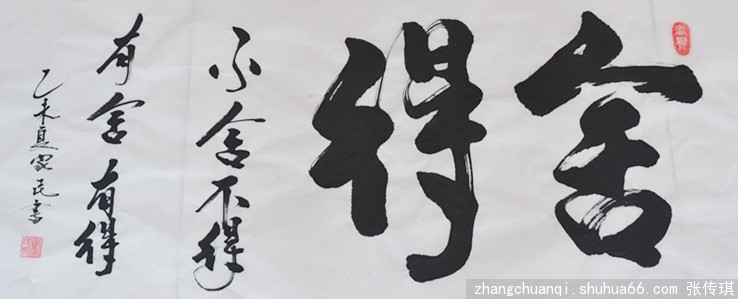 舍得
不舍不得
有舍有得
乙未夏家民书
zhangchuanqi.shuhua66.com 张传琪